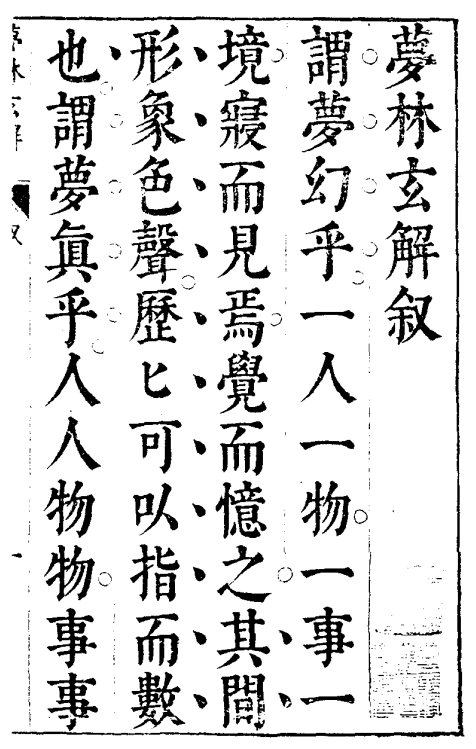 夢林玄解叙
謂夢幻乎一人一物一事一
境寢而見焉覺而憶之其間
形象色聲歷匕可以指而數
也謂夢眞乎人人物物事事
夢林玄解 叙 一